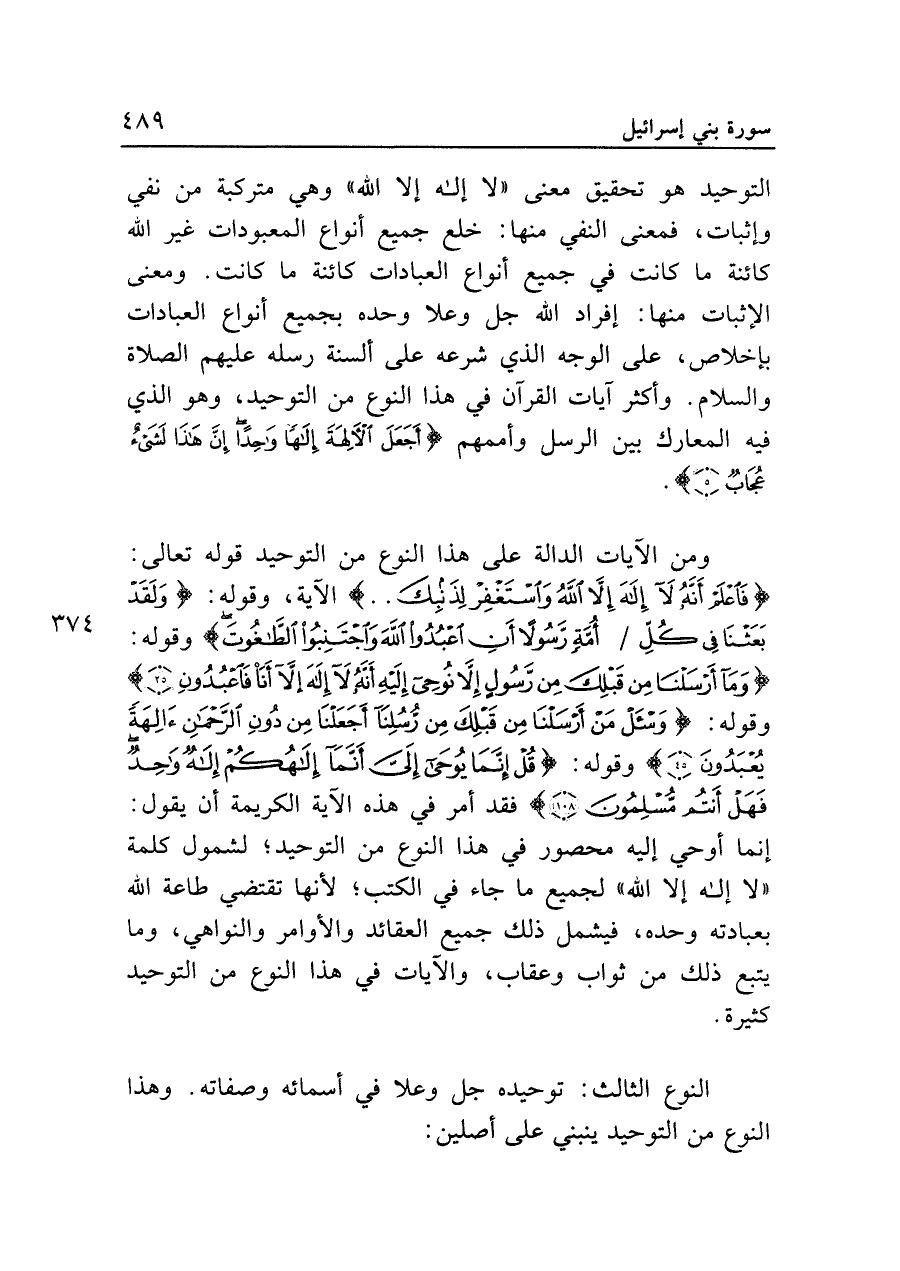 سورة بني إسرائيل ٤٨٩
التوحيد هو تحقيق معنى «لا إلـٰه إلا الله» وهي متركبة من نفي
وإثبات، فمعنى النفي منها: خلع جميع أنواع المعبودات غير الله
كائنة ما كانت في جميع أنواع العبادات كائنة ما كانت. ومعنى
الإثبات منها: إفراد الله جل وعلا وحده بجميع أنواع العبادات
بإخلاص، على الوجه الذي شرعه على ألسنة رسله عليهم الصلاة
والسلام. وأكثر آيات القرآن في هذا النوع من التوحيد، وهو الذي
فيه المعارك بين الرسل وأممهم ﴿أَجَعَلَ ٱلْأٓلِهَةَ إِلَٰهًا وَٰحِدًا ۖ إِنَّ هَٰذَا لَشَىْءٌ
عُجَابٌ ٥﴾.
ومن الآيات الدالة على هذا النوع من التوحيد قوله تعالى:
﴿فَٱعْلَمْ أَنَّهُۥ لَآ إِلَٰهَ إِلَّا ٱللَّهُ وَٱسْتَغْفِرْ لِذَنۢبِكَ..﴾ الآية، وقوله: ﴿وَلَقَدْ
٣٧٤
بَعَثْنَا فِى كُلِّ / أُمَّةٍ رَّسُولًا أَنِ ٱعْبُدُوا۟ ٱللَّهَ وَٱجْتَنِبُوا۟ ٱلطَّٰغُوتَ ۖ﴾ وقوله:
﴿وَمَآ أَرْسَلْنَا مِن قَبْلِكَ مِن رَّسُولٍ إِلَّا نُوحِىٓ إِلَيْهِ أَنَّهُۥ لَآ إِلَٰهَ إِلَّآ أَنَا۠ فَٱعْبُدُونِ ٢٥﴾
وقوله: ﴿وَسْـَٔلْ مَنْ أَرْسَلْنَا مِن قَبْلِكَ مِن رُّسُلِنَآ أَجَعَلْنَا مِن دُونِ ٱلرَّحْمَٰنِ ءَالِهَةً
يُعْبَدُونَ ٤٥﴾ وقوله: ﴿قُلْ إِنَّمَا يُوحَىٰٓ إِلَىَّ أَنَّمَآ إِلَٰهُكُمْ إِلَٰهٌ وَٰحِدٌ ۖ
فَهَلْ أَنتُم مُّسْلِمُونَ ١٠٨﴾ فقد أمر في هذه الآية الكريمة أن يقول:
إنما أوحي إليه محصور في هذا النوع من التوحيد؛ لشمول كلمة
«لا إلـٰه إلا الله» لجميع ما جاء في الكتب؛ لأنها تقتضي طاعة الله
بعبادته وحده، فيشمل ذلك جميع العقائد والأوامر والنواهي، وما
يتبع ذلك من ثواب وعقاب، والآيات في هذا النوع من التوحيد
كثيرة.
النوع الثالث: توحيده جل وعلا في أسمائه وصفاته. وهذا
النوع من التوحيد ينبني على أصلين: